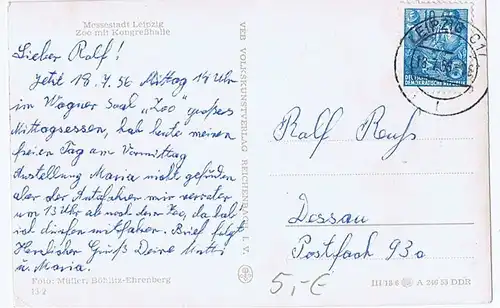 Messestadt Leipzig
Zoo mit Kongreßhalle
Lieber Ralf!
Jetzt 18.7.56 Mittag 14 Uhr
im Wagner Saal "Zoo" großes
Mittagessen, hab heute meinen
freien Tag am Vormittag
Anstellung Maria nicht gefunden
aber der Autofahrer mir verraten
um 13 Uhr ab nach dem Zoo, da hab
ich dürfen mitfahren. Brief folgt
Herzlicher Gruß Deine Mutti
u. Maria.
Foto: Müller, Böhlitz-Ehrenberg
VEB VOLKSKUNSTVERLAG REICHENBACH I. V.
LEIPZIG C1
10
DEUTSCHE
DEMOKRATISCHE REPUBLIK
Ralf
Dessau
Postfach 93a
5,-€
III 18 6 A 246 55 DDR